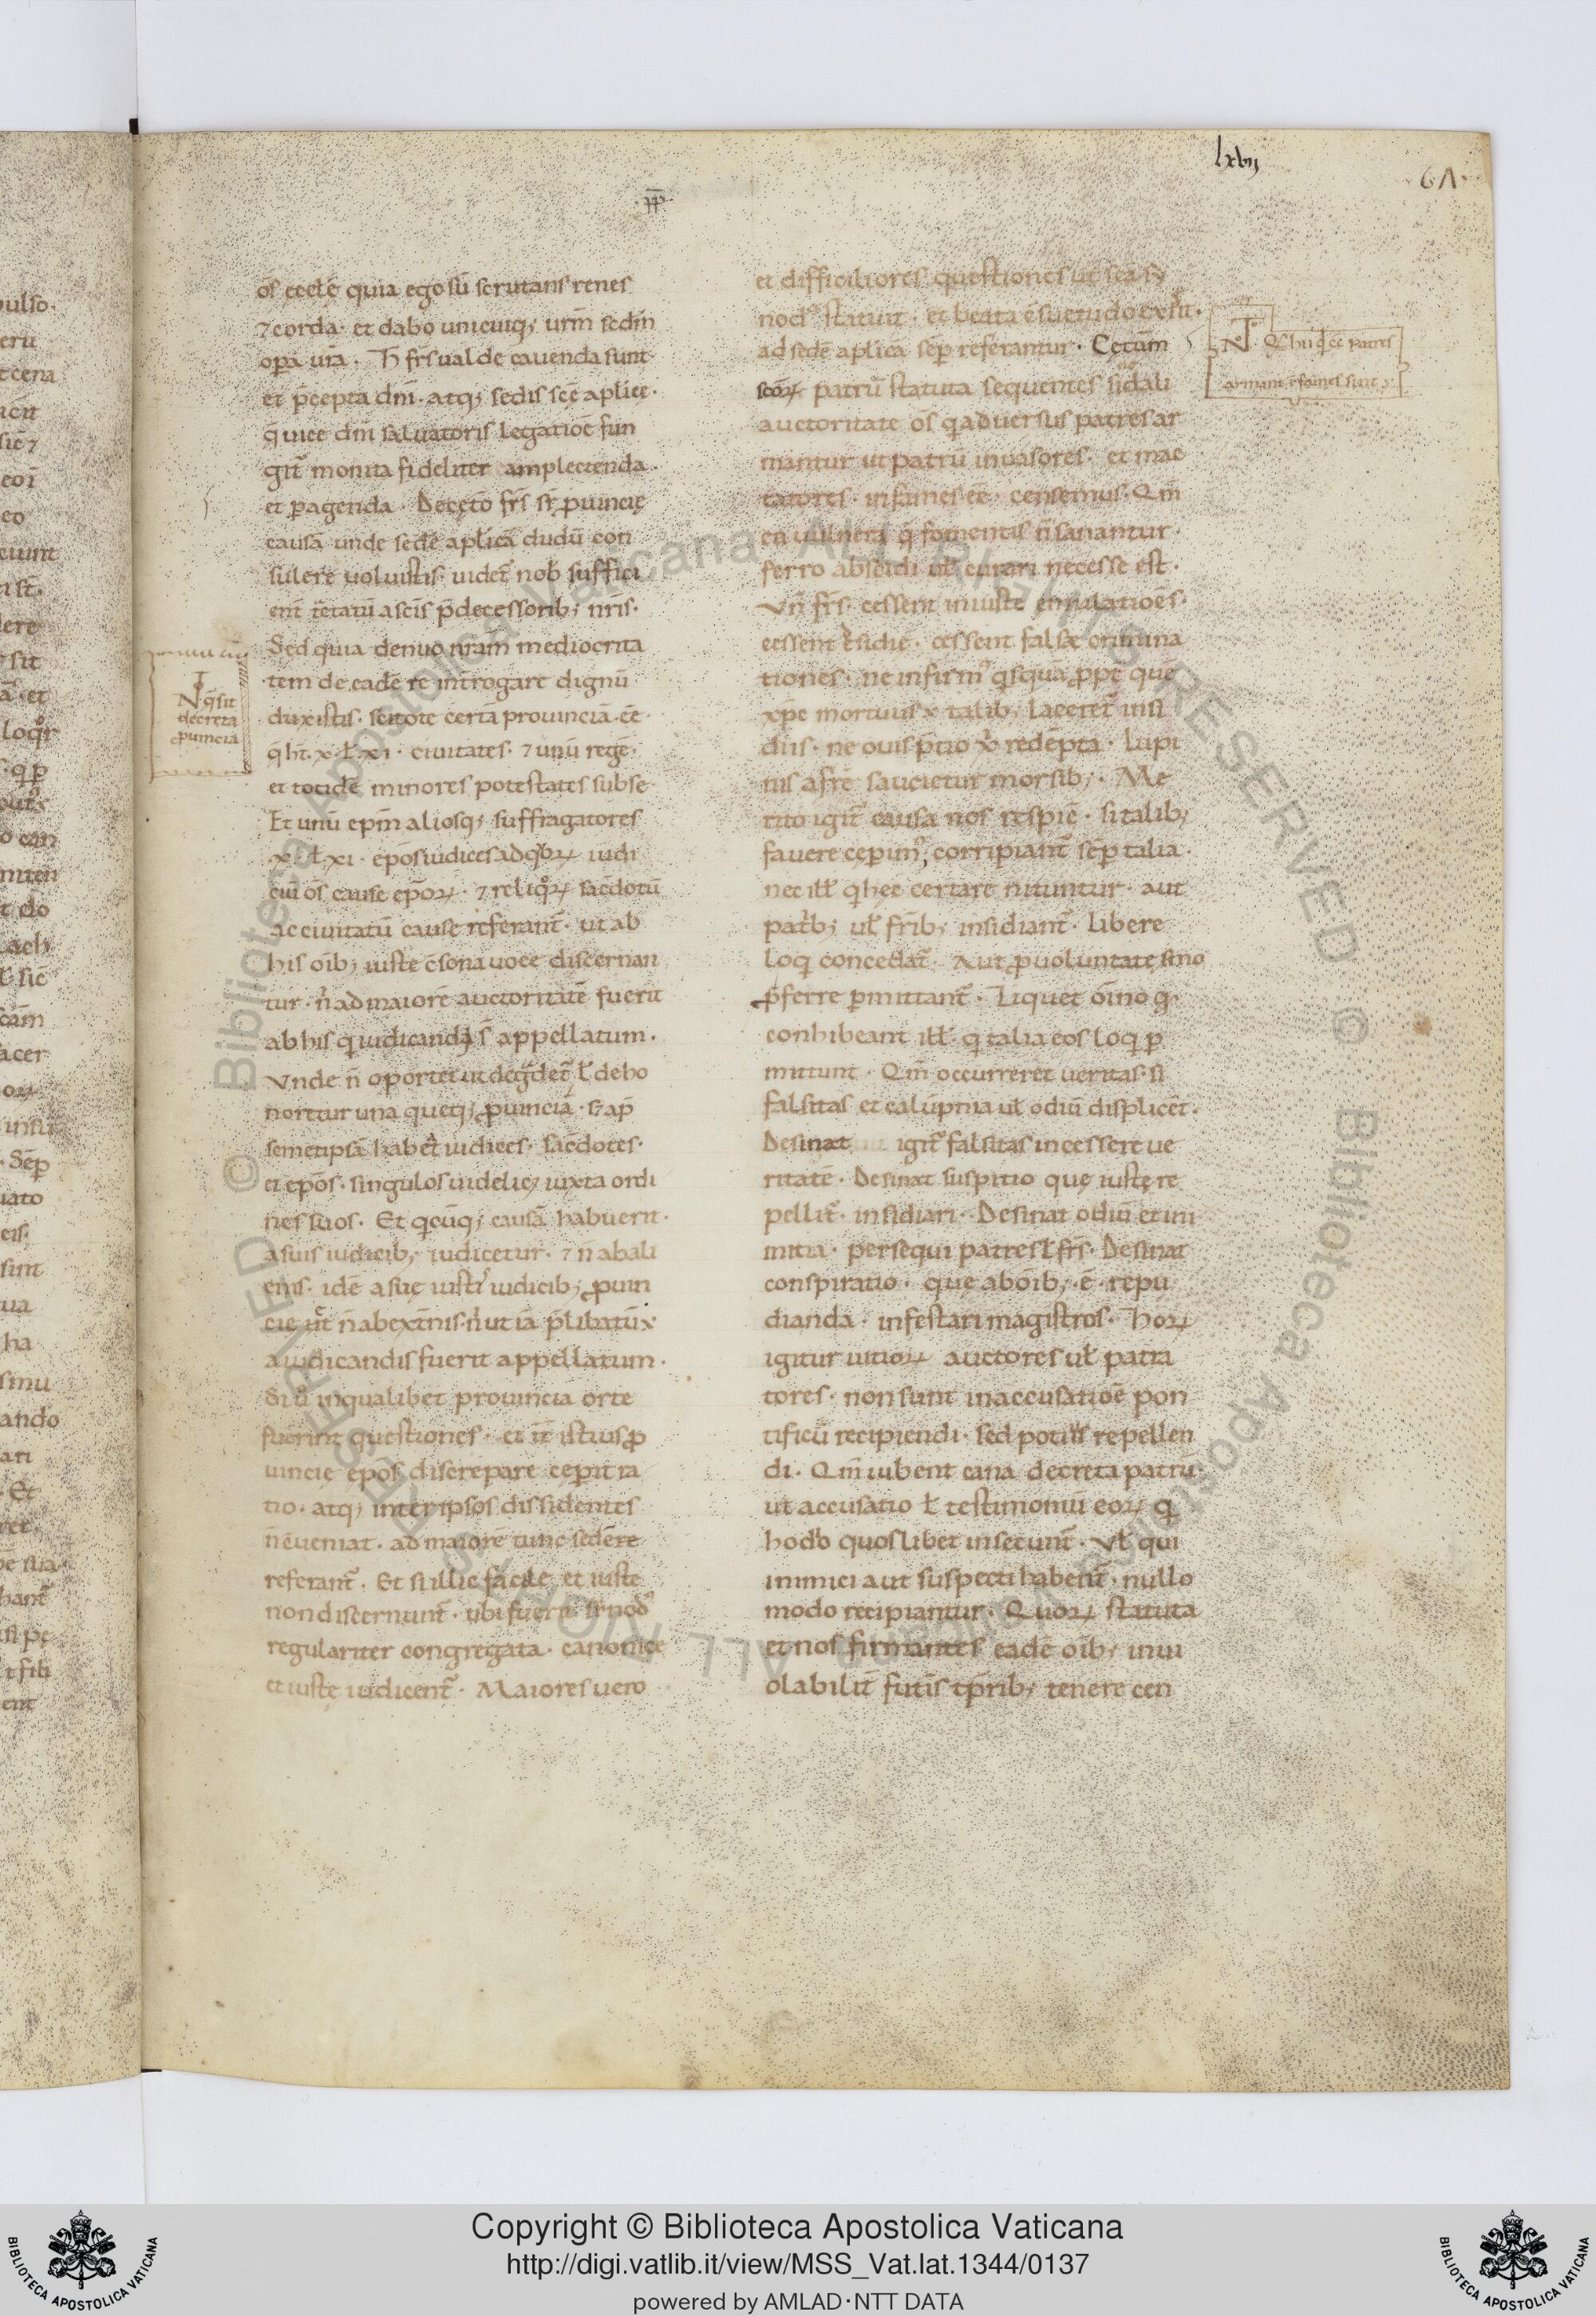 lxvij
67.
.pp.
os̄ eccl̄e quia ego sū scrutans renes
⁊ corda. et dabo unicuiq; ur̄m scdm̄
opa ur̄a. H̄ fr̄s ualde cauenda sunt
et p̄cepta dn̄i. atq; sedis sc̄e aplice.
q̄ uice dn̄i saluatoris legatioē fun
git̄ monita fideliter amplectenda.
et pagenda. De cęto fr̄s sr̄ ꝓuincię
causā unde sedē aplicā dudū con
sulere uoluistis. uidet̄ nob̄ suffici
ent̄ t̄ctatū a sc̄is p̄decessorib; nr̄is.
Sed quia denuo nr̄am mediocrita
tem de eadē re int̄rogare dignū
duxistis. scitote certā prouinciā .eē.
q̄ ht̄. x. ł xi. ciuitates. ⁊ unū regē.
et totidē minores potestates sub se
Et unū ep̄m aliosq; suffragatores
x. ł xi. ep̄os iudices ad qͦrꝝ iudi
ciū os̄ cause ep̄oꝝ. ⁊ reliqͦꝝ sac̄dotū
ac ciuitatū cause referant̄. ut ab
his oīb; iuste c̄sona uoce discernan
tur. n̄ ad maiorē auctoritatē fuerit
ab his q iudicandi s̄ appellatum.
Vnde n̄ oportet ut degͣdet̄ ł deho
noretur una queq; ꝓuinciā. s; ap̄
semetipsā habeͣt iudices. sac̄dotes.
et ep̄os. singulos uidelic; iuxta ordi
nes suos. Et qcūq; causā habuerit.
a suis iudicib; iudicetur. ⁊ n̄ ab ali
enis. idē a suę iustͥ iudicib; ꝓuin
cie ut̄ n̄ ab ext̄nis. n̄ ut iā p̄libatū x
a iudicandis fuerit appellatum.
Si uͦ in qualibet prouincia orte
fuerint questiones. et int̄ istius ꝓ
uincię ep̄os discrepare cep̄it ra
tio. atq; inter ipsos dissidentes
n̄ c̄ueniat. ad maiorē tunc sedē re
referant̄. Et si illic facile et iuste
non discernunt̄. ubi fuerit sinodꝰ
regulariter congregata. canonice
et iustę iudicent̄. Maiores uero
N qͥ sit
decreta
ꝓuincia
et difficiliores questiones ut sc̄a sy
nodꝰ statuit. et beata c̄suetudo exͥgit.
ad sedē aplicā sēp referantur. Cęt̄um
sc̄oꝝ patrū statuta sequentes siͫdali
auctoritate os̄ q aduersus patres ar
mantur ut patrū inuasores. et mac
tatores. infames eē. censemus. Qm̄
ea uulnera q̄ fomentis n̄ sanantur.
ferro abscidi uł curari necesse est.
Vn̄ fr̄s. cessent iniuste emulatioēs.
cessent īsidie. cessent falsæ crimina
tiones. ne infirmꝰ qsquā ꝓpt̄ quē
xp̄c mortuus x̄ talib; laceret̄ insi
diis. ne ouis p̄tio xͥ redēpta. lupi
nis a fr̄e saucietur morsib;. Me
rito igit̄ causa nos respic̄. si talib;
fauere cęperimꝰ, corripiant̄ sēp talia.
nec ill̄ q hęc certare nituntur. aut
patͥb; uł fr̄ib; insidiant̄. libere
loq concedat̄. Aut ꝓ uoluntatę sͣmo
p̄ferre pmittant̄. Liquet oīno qͣ
conhibeant ill̄. q talia eos loq p
mittunt. Qm̄ occurreret ueritas. si
falsitas et calūpnia uł odiū displicet̄.
Desinat igit̄ falsitas incessere ue
ritatē. Desinat suspitio quę iustę re
pellit̄. insidiari. Desinat odiū et ini
mitia. persequi patres ł fr̄s. Desinat
conspiratio. quę ab oīb;. ē. repu
dianda. infestari magistros. Hoꝝ
igitur uitioꝝ auctores uł patra
tores. non sunt in accusatioē pon
tificū recipiendi. sed potius repellen
di. Qm̄ iubent cana decreta patrū.
ut accusatio ł testimoniū eoꝝ q
hodͦo quoslibet insecunt̄. Vł qui
inimici aut suspecti habent̄. nullo
modo recipiantur. Quoꝝ statuta
et nos firmantes eadē oīb; inui
olabilit̄ futis̄ tp̄rib; tenere cen
N. Qͥ hi q̄ cō patres
armant̄ ifames sunt.
Copyright © Biblioteca Apostolica Vaticana
http://digi.vatlib.it/view/MSS_Vat.lat.1344/0137
powered by AMLAD·NTT DATA